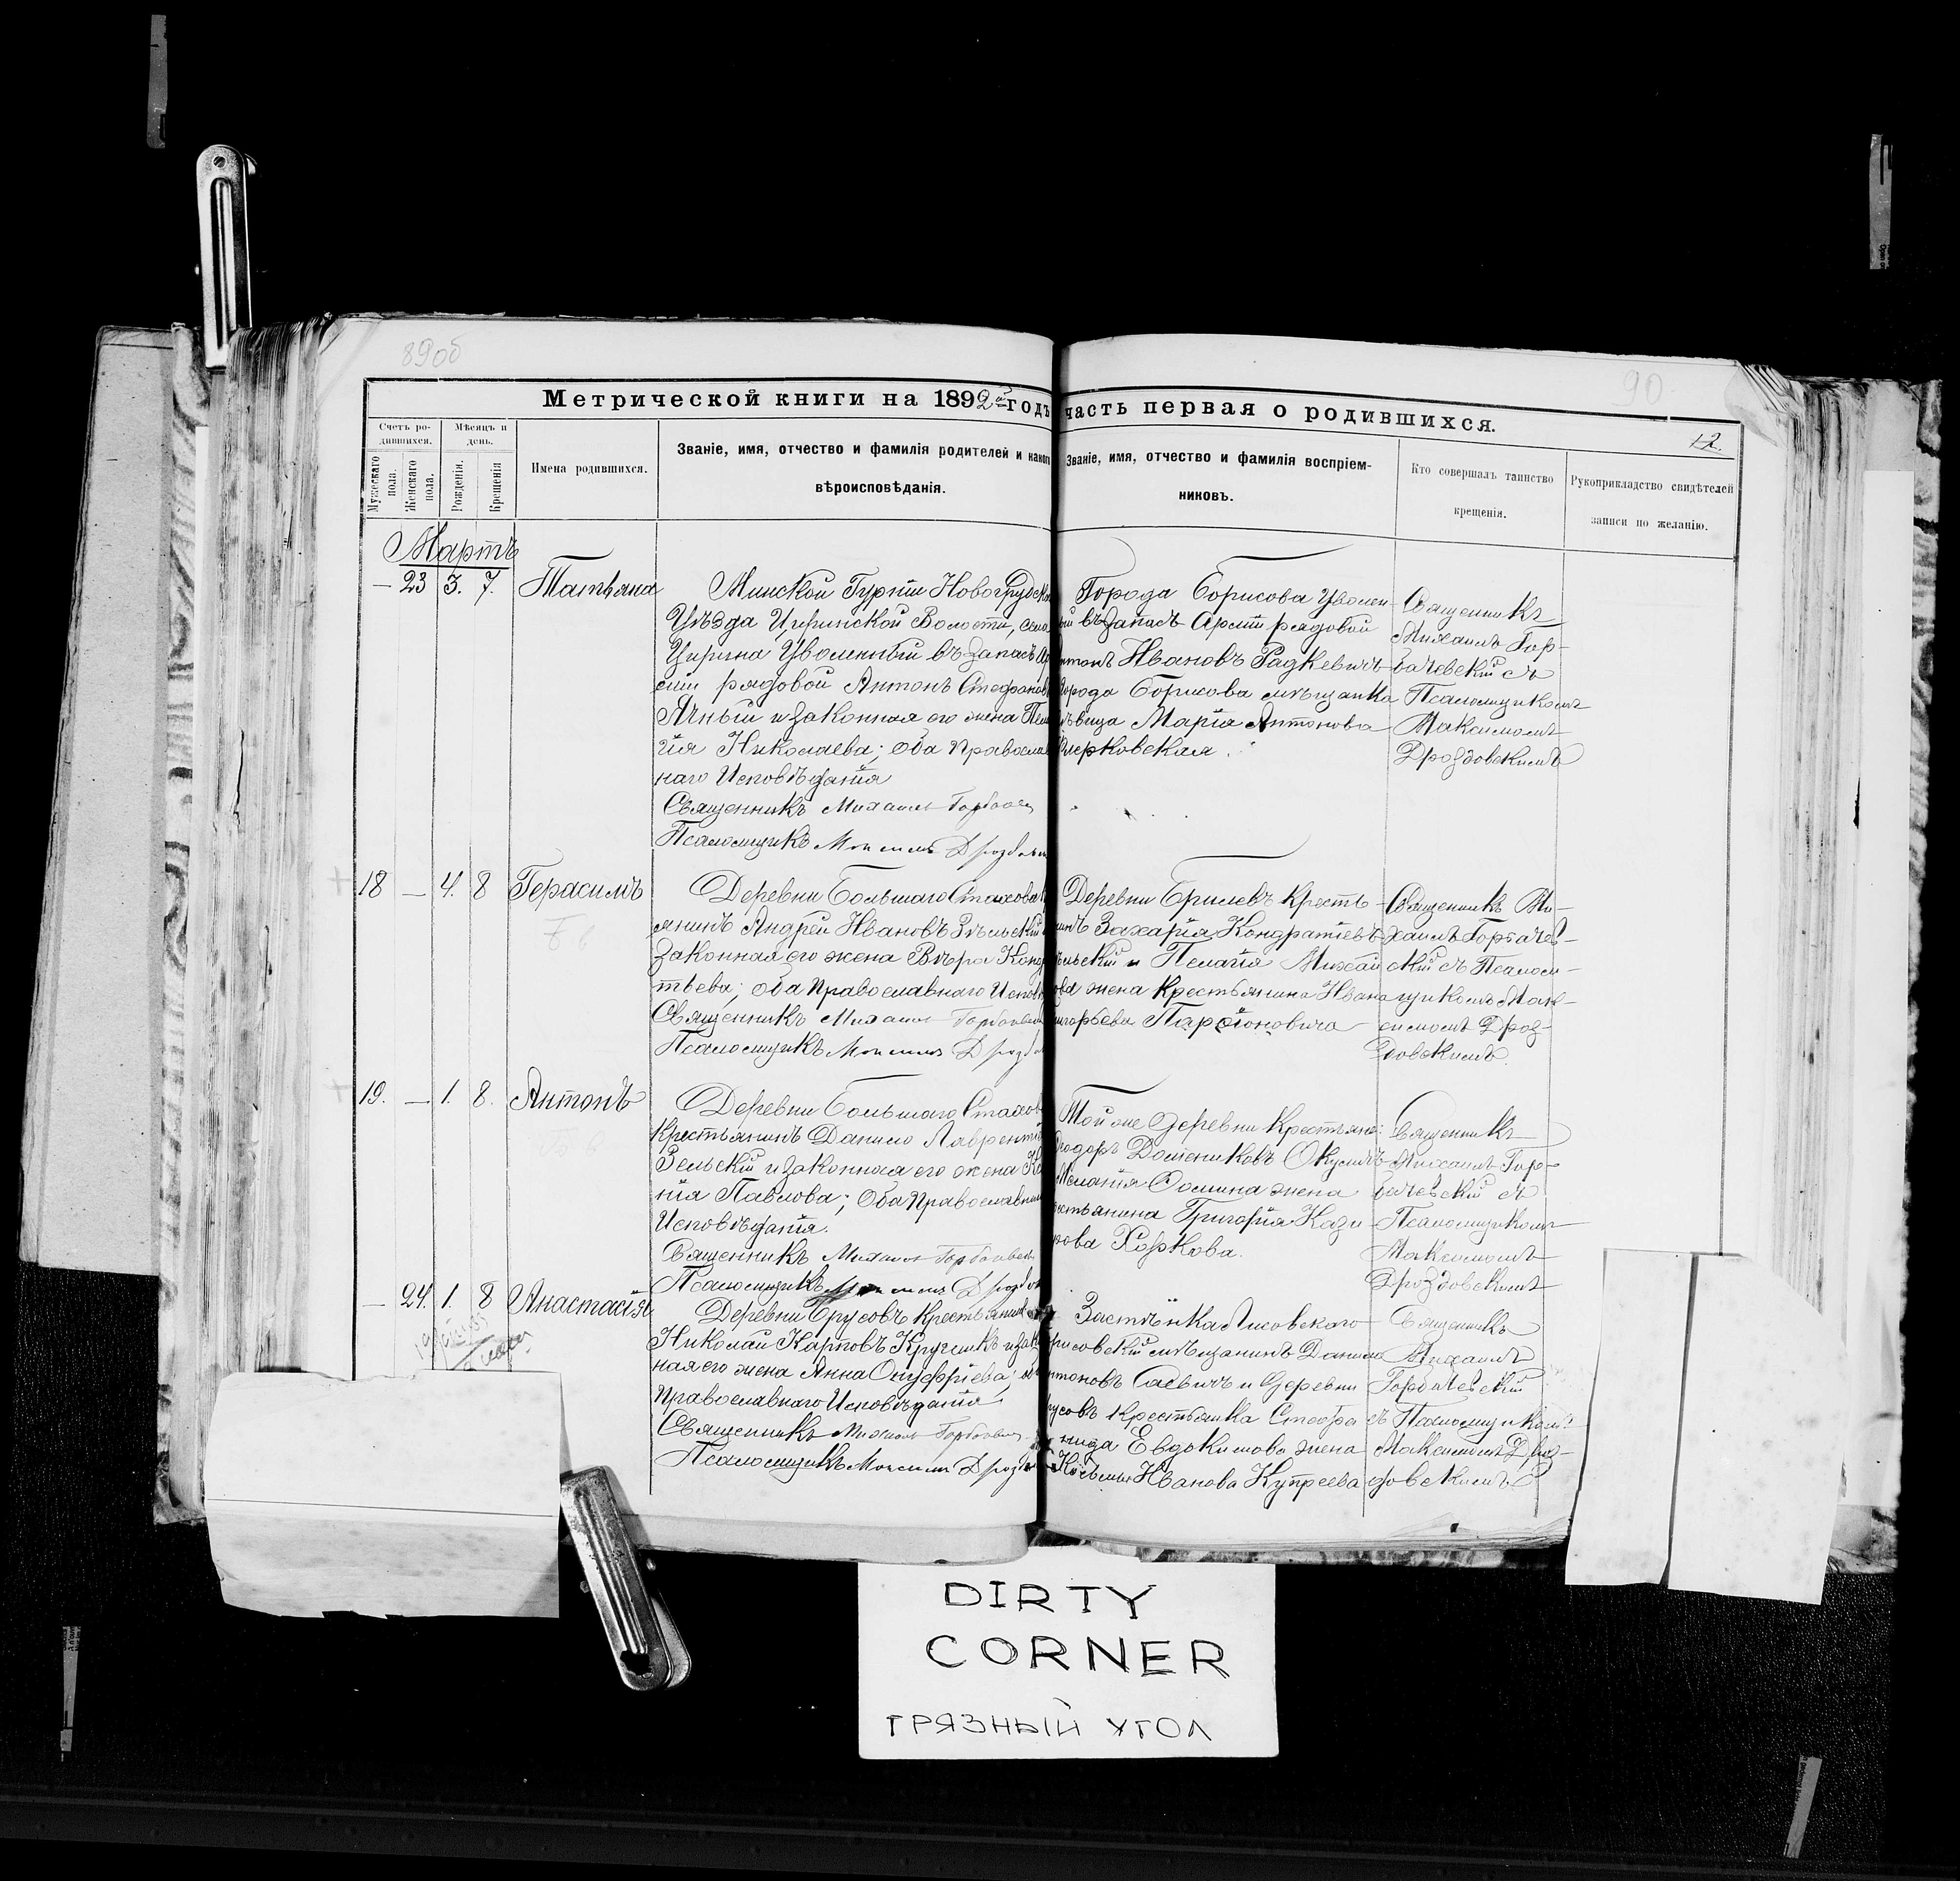 89об
90
Метрической книги на 1892й годъ часть первая о родившихся.
12.
Счетъ ро-
дившихся.
Мѣсяцъ и
день.
Мужескаго
пола.
Женскаго
пола.
Рожденія.
Крещенія
Имена родившихся.
Званіе, имя, отчество и фамилія родителей и какого
вѣроисповѣданія.
Званіе, имя, отчество и фамилія воспріем-
никовъ.
Кто совершалъ таинство
крещенія.
Рукоприкладство свидѣтелей
записи по желанію.
Мартъ
— 23 3. 7. Татьяна
Минской Губніи Новогрудск
Уѣзда Циринской Волости, села
Цирина Уволенный въ Запасъ Ар
міи рядовой Антонъ Стефановъ
и законная его жена Пела
гія Николаева; оба Православ
наго Исповѣданія
Священникъ Михаилъ Горбачев
Псаломщикъ Максимъ Дроздовск
Города Борисова Уволен-
ый въ Запасъ Арміи рядовой
нтонъ Ивановъ Радкевичъ
города Борисова мѣщанка
дѣвица Марія Антонова
Священникъ
Михаилъ Гор-
бачевскій съ
Псаломщикомъ
Максимомъ
Дроздовскимъ
18 — 4. 8 Герасимъ
Деревни Большаго Стахова
янинъ Андрей Ивановъ Зѣльскій
Законная его жена Вѣра Конд
тьева; оба Православнаго Испов
Священникъ Михаилъ Горбачевск
Псаломщикъ Максимъ Дроздо
Деревни Брилевъ Кресть-
инъ Захарія Кондратіевъ
ѣльскій и Пелагія Михай
ова жена Крестьянина Ивана
ригорьева Парфіоновича
Священникъ Ми-
хаилъ Горбачев-
скій съ Псалом-
щикомъ Мак-
симомъ Дроз-
довскимъ.
19. — 1. 8. Антонъ
Деревни Большаго Стахов
Крестьянинъ Данило Лаврентіе
Зельскій и законная его жена Кс
нія Павлова; Оба Православнаго
Исповѣданія.
Священникъ Михаилъ Горбачевск
Псаломщикъ Максимъ Дроздов
Той же деревни Крестьяне:
еодоръ
Меланія Фомина жена
естьянина Григорія Кази
рова Харкова.
Священникъ
Михаилъ Гор-
бачевскій съ
Псаломщикомъ
Максимомъ
Дроздовскимъ
— 24. 1. 8 Анастасія
Деревни Брусовъ Крестьянинъ
Николай Карповъ и зак
ная его жена Анна Онуфріева;
Православнаго Исповѣданія
Священникъ Михаилъ Горбачевск
Псаломщикъ Максимъ Дроздов
Застѣнка Лисовскаго
рисовскій мѣщанинъ Данила
нтоновъ Саевичъ и Деревни
русовъ Крестьянка Стефа
нида Евдокимова жена
Косьмы Иванова Купреева
Священникъ
Михаилъ
Горбачевскій
съ Псаломщикомъ
Максимомъ Дроз-
довскимъ
DIRTY
CORNER
ГРЯЗНЫЙ УГОЛ